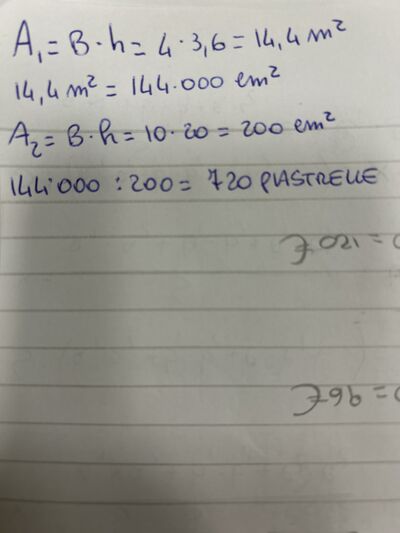 A₁ = B · h = 4 · 3,6 = 14,4 m²
14,4 m² = 144.000 cm²
A₂ = B · h = 10 · 20 = 200 cm²
144.000 : 200 = 720 PIASTRELLE